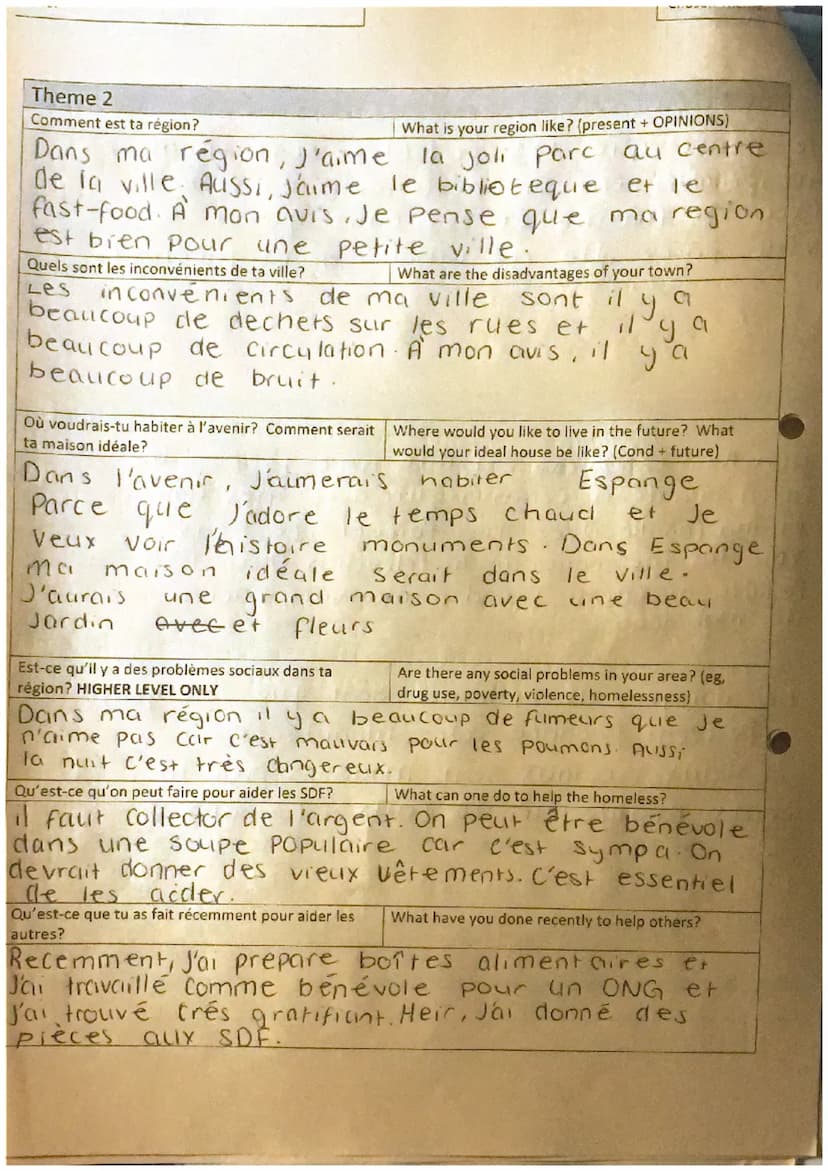 Theme 2
Comment est ta région?
What is your region like? (present + OPINIONS)
Dans ma région, J'aime la joli parc au centre
de la ville. Aussi, J'aime le biblioteque et le
fast-food. À mon avis, Je pense que ma region
est bien pour une petite ville.
Quels sont les inconvénients de ta ville?
What are the disadvantages of your town?
Les inconvénients de ma ville sont il y a
beaucoup de dechets sur les rues et il y a
beaucoup de circulation. À mon avis, il y a
beaucoup de bruit.
Où voudrais-tu habiter à l'avenir? Comment serait
ta maison idéale?
Where would you like to live in the future? What
would your ideal house be like? (Cond + future)
Dans l'avenir, J'aimerais habiter Espange
Parce que J'adore le temps chaud et Je
Veux voir l'histoire monuments. Dans Espange
Ma maison idéale serait dans le ville.
J'aurais une grand maison avec une beau
Jardin avec et fleurs
Est-ce qu'il y a des problèmes sociaux dans ta
région? HIGHER LEVEL ONLY
Are there any social problems in your area? (eg,
drug use, poverty, violence, homelessness)
Dans ma région il y a beaucoup de fumeurs que Je
n'aime pas car c'est mauvais pour les poumons. Aussi
la nuit c'est très dangereux.
Qu'est-ce qu'on peut faire pour aider les SDF?
What can one do to help the homeless?
il faut collector de l'argent. On peut être bénévole
dans une soupe Populaire car c'est sympa. On
devrait donner des vieux vêtements. C'est essentiel
de les acder.
Qu'est-ce que tu as fait récemment pour aider les
autres?
What have you done recently to help others?
Recemment, J'ai preparé boîtes alimentaires et
J'ai travaillé comme bénévole pour un ONG et
J'ai trouvé trés gratifiant. Heir, J'ai donné des
pièces aux SDF.